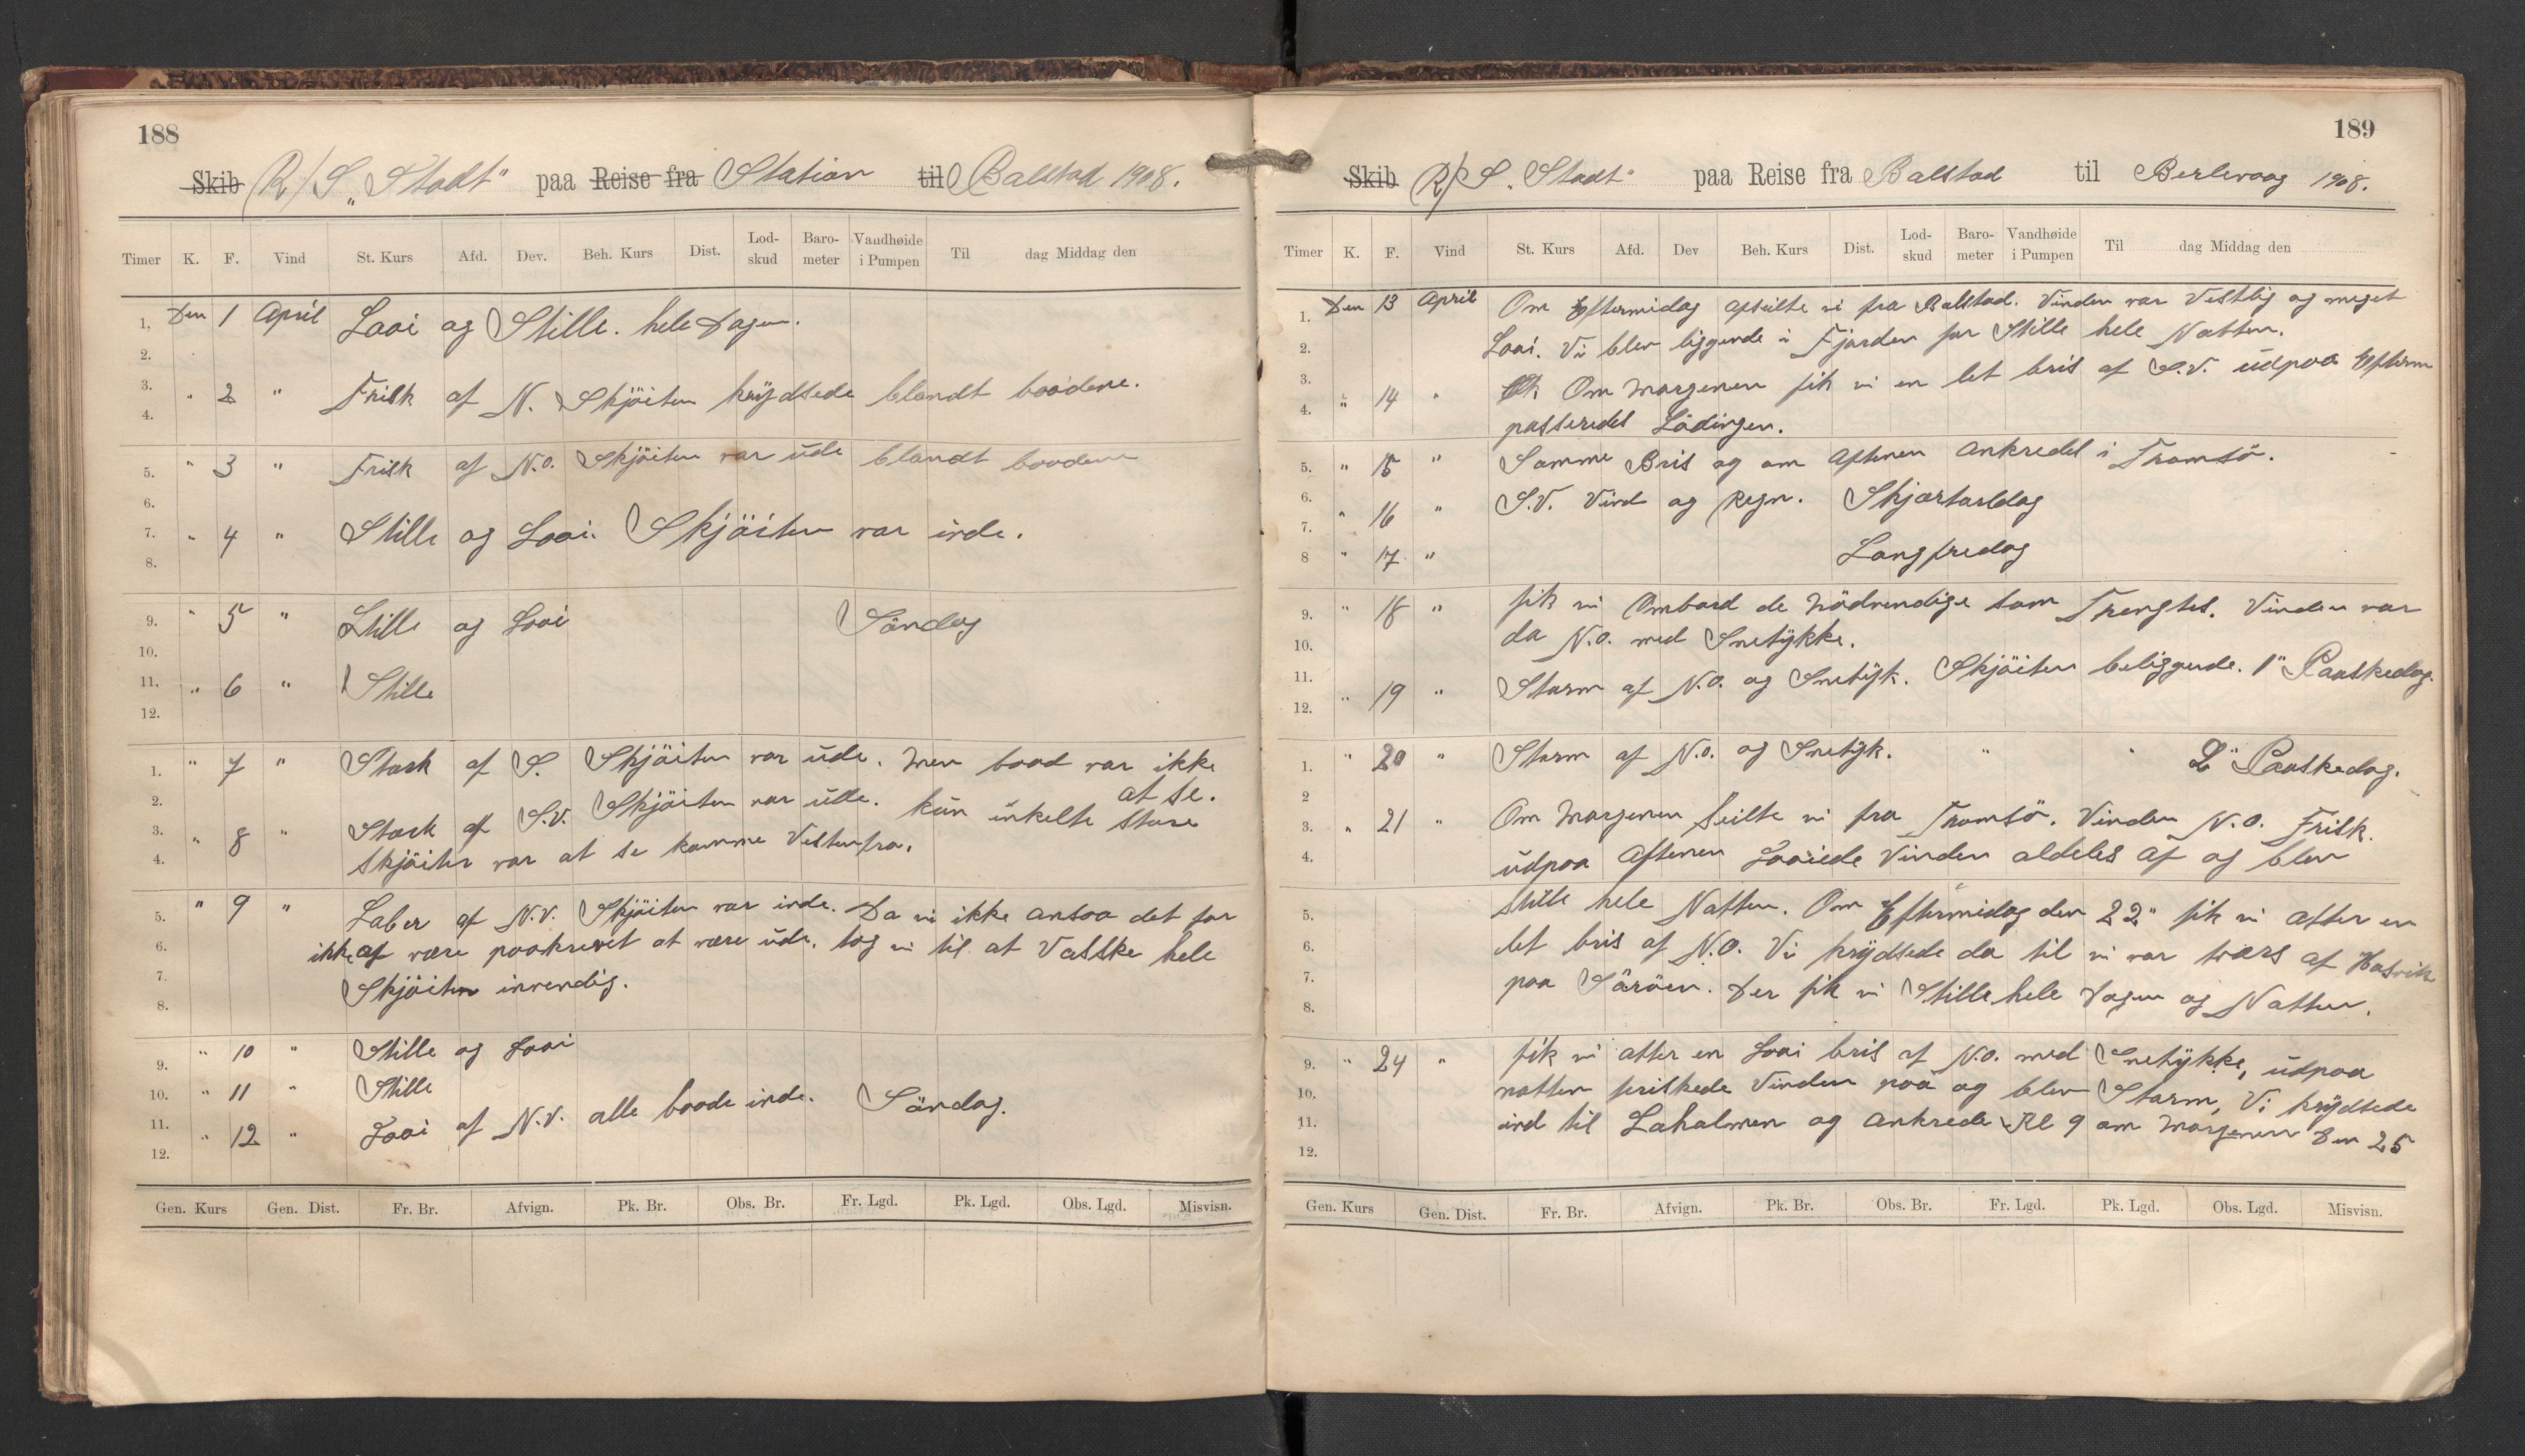 188
Skib R/S „Stadt" paa Reise fra Station til Balstad 1908.
Timer K. F. Vind St. Kurs Afd. Dev. Beh. Kurs Dist. Lod-skud Baro-meter Vandhøide i Pumpen Til dag Middag den
1. Den 1 April Laai og Stille. hele Dagen.
2.
3. " 2 " Frisk af N. Skjöiten krÿdsede blandt baadene.
4.
5. " 3 " Frisk af N.O. Skjöiten var ude blandt baadene
6.
7. " 4 " Stille og Laai. Skjöiten var inde.
8.
9. " 5 " Stille og Laai Söndag
10.
11. " 6 " Stille
12.
1. " 7 " Stærk af S. Skjöiten var ude. Men baad var ikke
at se.
2.
3. " 8 " Stærk af S.V. Skjöiten var ude. kun enkelte Store
4. Skjöiter var at se komme Vestenfra.
5. " 9 " Laber af N.V. Skjöiten var inde. Da vi ikke ansaa det for
6. ikke af være paakrevet at være ude. tog vi til at Vasske hele
7. Skjöiten invendig.
8.
9. " 10 " Stille og Laai
10. " 11 " Stille
11. " 12 " Laai af N.V. alle baade inde. Söndag.
12.
Gen. Kurs Gen. Dist. Fr. Br. Afvign. Pk. Br. Obs. Br. Fr. Lgd. Pk. Lgd. Obs. Lgd. Misvisn.
189
Skib R/S „Stadt" paa Reise fra Balstad til Berlevaag 1908.
Timer K. F. Vind St. Kurs Afd. Dev Beh. Kurs Dist. Lod-skud Baro-meter Vandhøide i Pumpen Til dag Middag den
1. Den 13 April Om Eftermidag afseilte vi fra Balstad. Vinden var Vestlig og meget
2. Laai. Vi blev liggende i Fjorden for Stille hele Natten.
3. " 14 " Om Morgenen fik vi en let bris af S.V. udpaa Efterm
4. passeredes Lödingen.
5. " 15 " Samme Bris og om Aftenen Ankredes i Tromsö.
6. " 16 " S.V. Vind og Regn. Skjærtorsdag
7.
8 " 17 " Langfredag
9. " 18 " fik vi Ombord de Nödvendige som Trengtes. Vinden var
10. da N.O. med Snetÿkke.
11. " 19 " Storm af N.O. og Snetÿk. Skjöiten beliggende. 1" Paaskedag.
12.
1. " 20 " Storm af N.O. og Snetÿk. " " 2" Paaskedag.
2
3. " 21 " Om Morgenen Seilte vi fra Tromsö. Vinden N.O. Frisk.
4. udpaa Aftenen Laaiede Vinden aldeles af og blev
5. stille hele Natten. Om Eftermidag den 22" fik vi atter en
6. let bris af N.O. Vi krÿdsede da til vi var tvers af Hasvik
7. paa Söröen. Der fik vi Stille hele Dagen og Natten.
8.
9. " 24 " fik vi atter en Laai bris af N.O. med Snetÿkke, udpaa
10. natten friskede Vinden paa og blev Storm, Vi krÿdsede
11. ind til Laholmen og Ankrede Kl 9 om Morgenen Den 25
12.
Gen. Kurs Gen. Dist. Fr. Br. Afvign. Pk. Br. Obs. Br. Fr. Lgd. Pk. Lgd. Obs. Lgd. Misvisn.